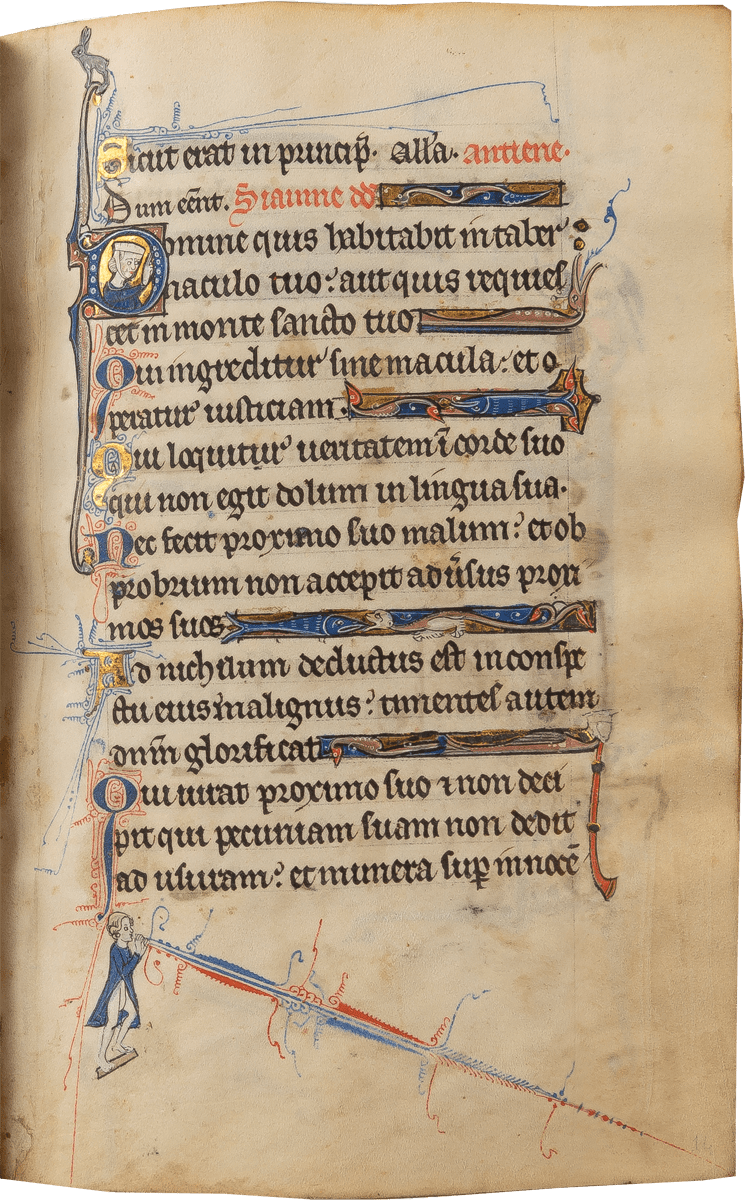 Sicut erat in princip̄. All'a. antiene.
Dum eēnt. Siaume dd
Domine quis habitabit in taber
naculo tuo: aut quis requies
cet in monte sancto tuo
Qui ingreditur sine macula: et o
peratur iusticiam.
Qui loquitur ueritatem ī corde suo
qui non egit dolum in lingua sua.
Nec fecit proximo suo malum: et ob
probrium non accepit aduˀsus proxi
mos suos
Ad nichilum deductus est in conspe
ctu eius malignus: timentes autem
dnm̄ glorificat
Qui iurat proximo suo ⁊ non deci
pit qui pecuniam suam non dedit
ad usuram: et munera sup̱ innocē